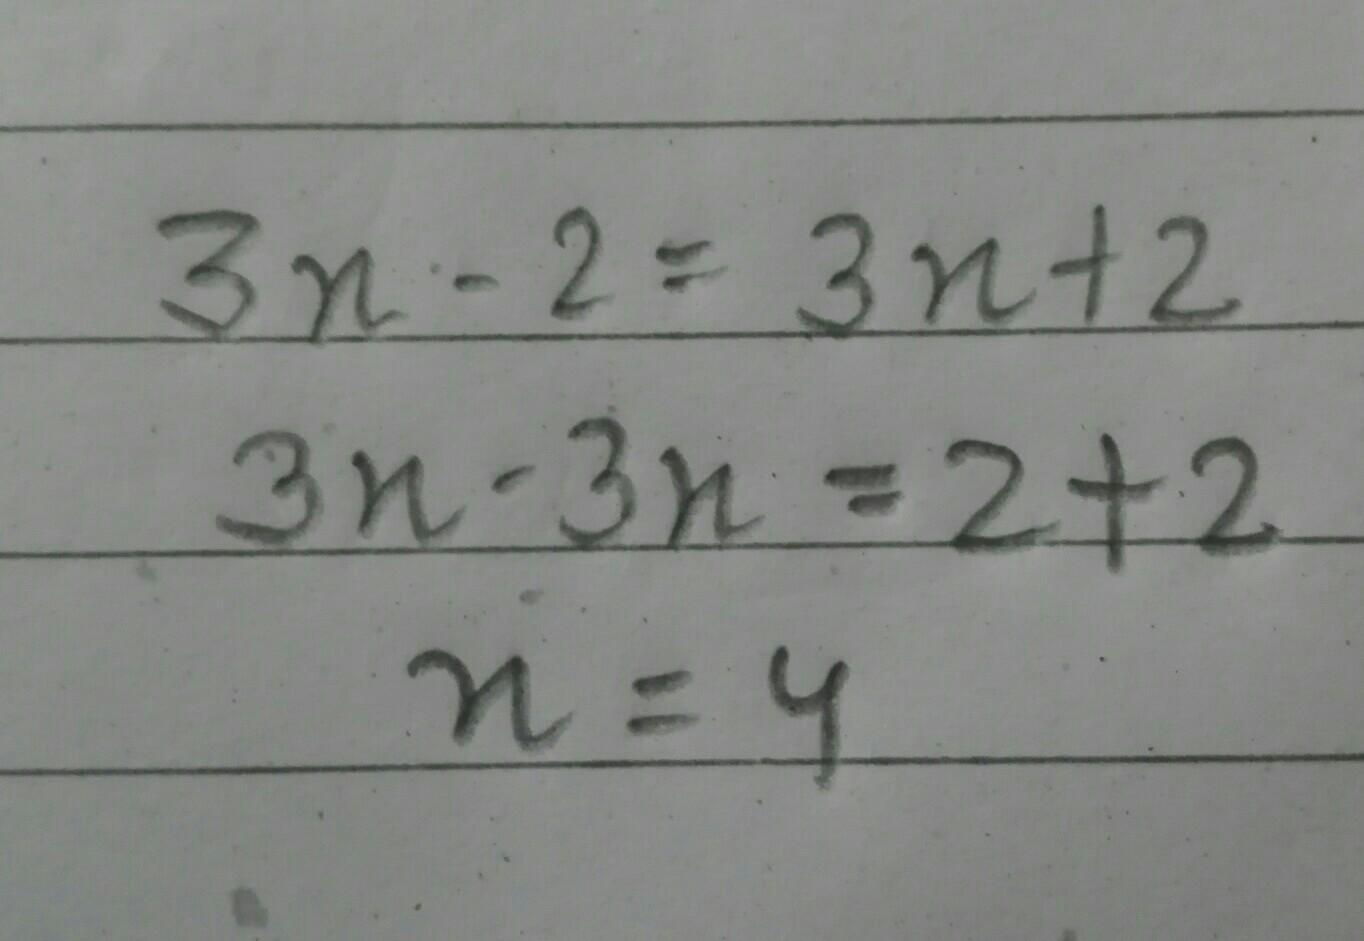 3x - 2 = 3x + 2
3x - 3x = 2 + 2
x = 4